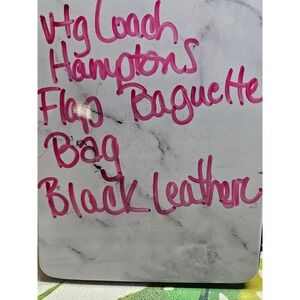 Vtg Coach
Hamptons
Flap Baguette
Bag
Black Leather